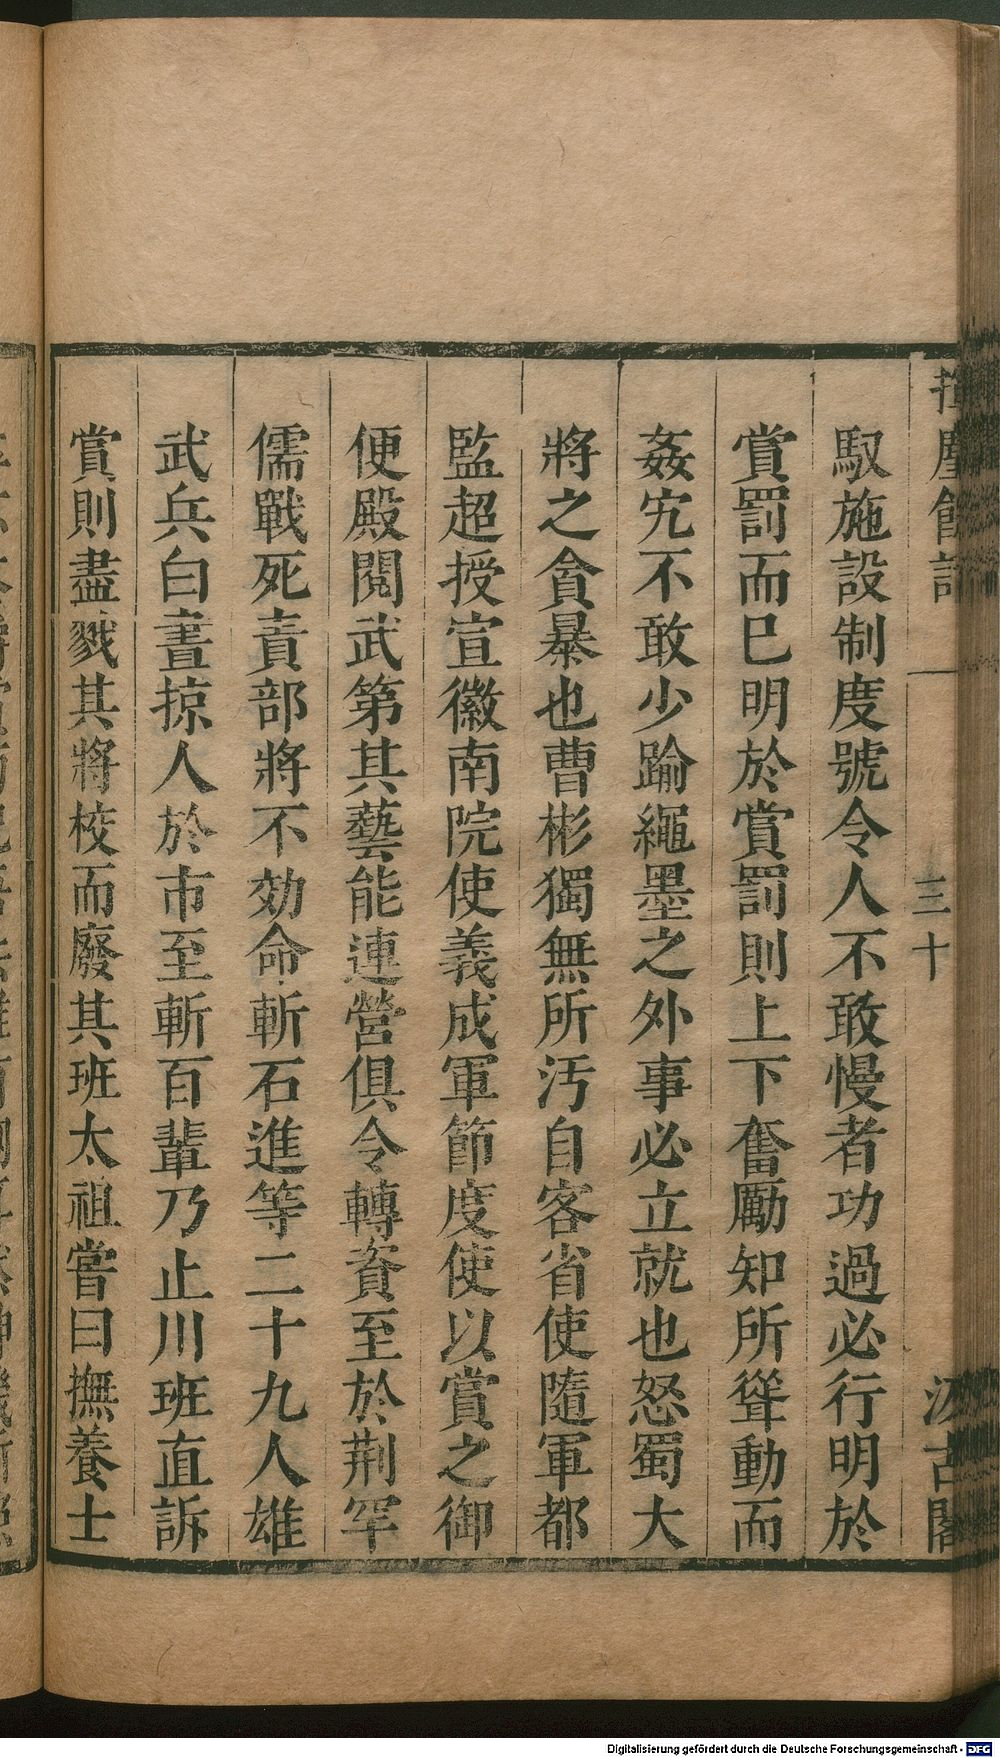 揮麈餘話 一 三十 汲古閣
馭施設制度號令人不敢慢者功過必行明於
賞罰而巳明於賞罰則上下奮勵知所聳動而
姦宄不敢少踰繩墨之外事必立就也怒蜀大
將之貪暴也曹彬獨無所汚自客省使隨軍都
監超授宣徽南院使義成軍節度使以賞之御
便殿閱武第其藝能連營俱令轉資至於荆罕
儒戰死責部將不効命斬石進等二十九人雄
武兵白晝掠人於市至斬百輩乃止川班直訴
賞則盡戮其將校而廢其班太祖嘗曰撫養士
Digitalisierung gefördert durch die Deutsche Forschungsgemeinschaft - DFG